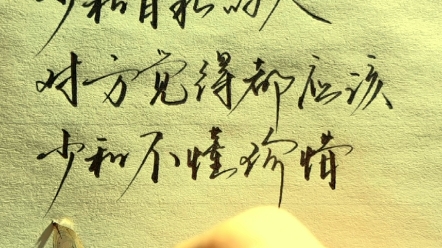 少和自私的人
对方觉得都应该
少和不懂珍惜